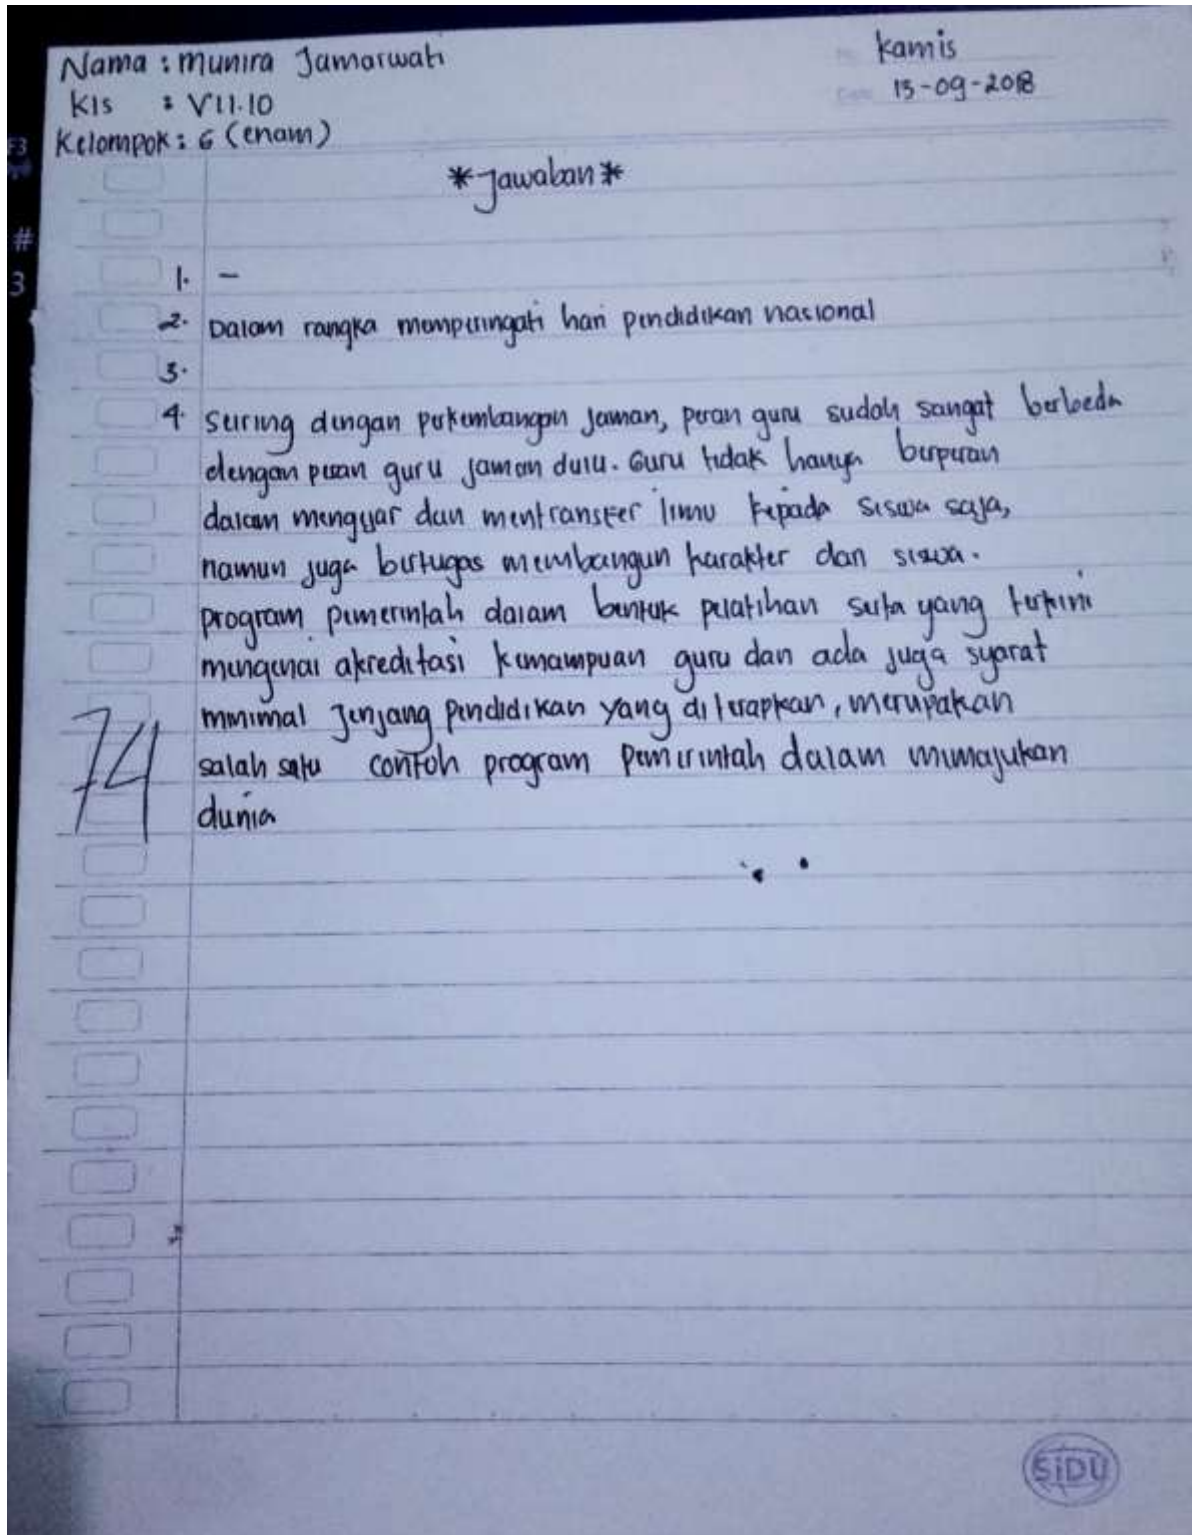 Nama : Munira Jamarwati
kamis
Kls : VII.10
13-09-2018
Kelompok : 6 (enam)
*Jawaban*
1. -
2. Dalam rangka memperingati hari pendidikan nasional
3.
4. Seiring dengan perkembangan jaman, peran guru sudah sangat berbeda
dengan peran guru jaman dulu. Guru tidak hanya berperan
dalam mengajar dan mentransfer ilmu kepada siswa saja,
namun juga bertugas membangun karakter dan siswa.
program pemerintah dalam bentuk pelatihan serta yang terkini
mengenai akreditasi kemampuan guru dan ada juga syarat
minimal Jenjang pendidikan yang diterapkan, merupakan
salah satu contoh program pemerintah dalam memajukan
dunia
74
SiDU